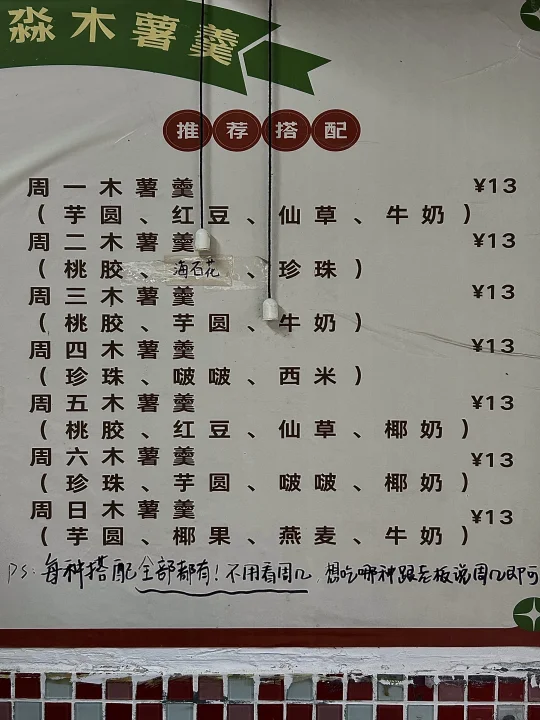 淼木薯羹
推荐搭配
周一木薯羹 ¥13
（芋圆、红豆、仙草、牛奶）
周二木薯羹 ¥13
（桃胶、海石花、珍珠）
周三木薯羹 ¥13
（桃胶、芋圆、牛奶）
周四木薯羹 ¥13
（珍珠、啵啵、西米）
周五木薯羹 ¥13
（桃胶、红豆、仙草、椰奶）
周六木薯羹 ¥13
（珍珠、芋圆、啵啵、椰奶）
周日木薯羹 ¥13
（芋圆、椰果、燕麦、牛奶）
PS: 每种搭配全部都有！不用看周几，想吃哪种跟老板说周几即可